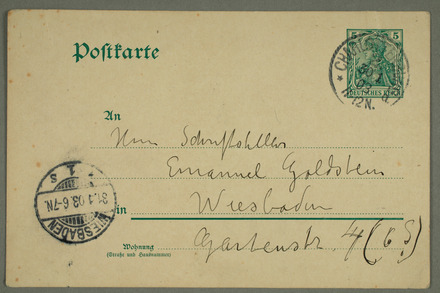 Postkarte
5 5
DEUTSCHES REICH
11-12N.
An
Herrn Schriftsteller
Emanuel Goldstein
in Wiesbaden
Wohnung
(Straße und Hausnummer)
Gartenstr. 4 (6
WIESBADEN
31.1.03.6-7N.
1